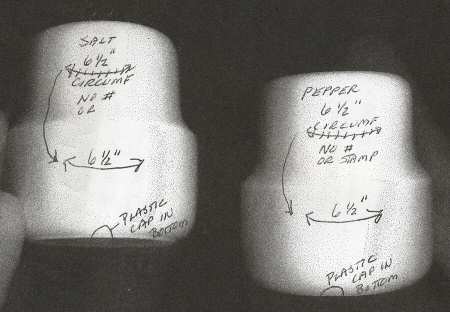 SALT
6 1/2"
CIRCUMF
NO #
OR
6 1/2"
PLASTIC
CAP IN
BOTTOM
PEPPER
6 1/2"
CIRCUMF
NO #
OR STAMP
6 1/2"
PLASTIC
CAP IN
BOTTOM